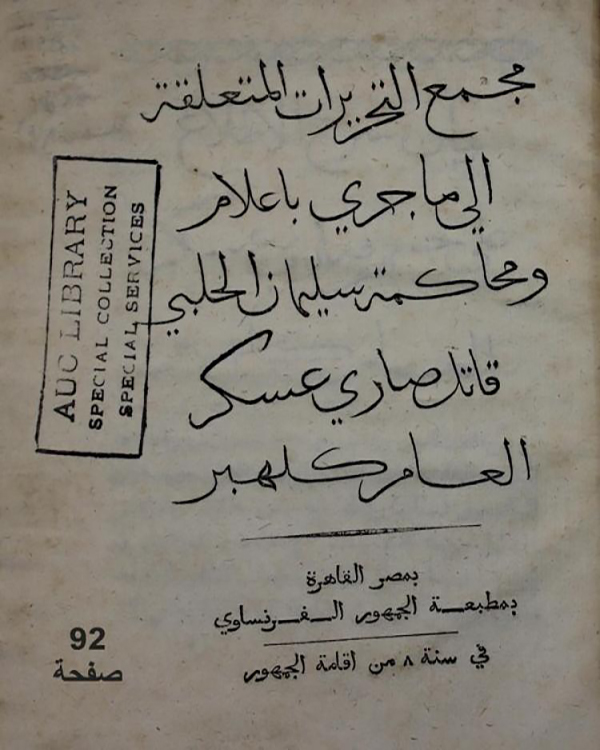 مجمع التحريرات المتعلقة
الي ما جري باعلام
ومحاكمة سليمان الحلبي
قاتل صاري عسكر
العام كلهبر
بمصر القاهرة
بمطبعة الجمهور الفرنساوي
في سنة ٨ من اقامة الجمهور
AUC LIBRARY
SPECIAL COLLECTION
SPECIAL SERVICES
92
صفحة